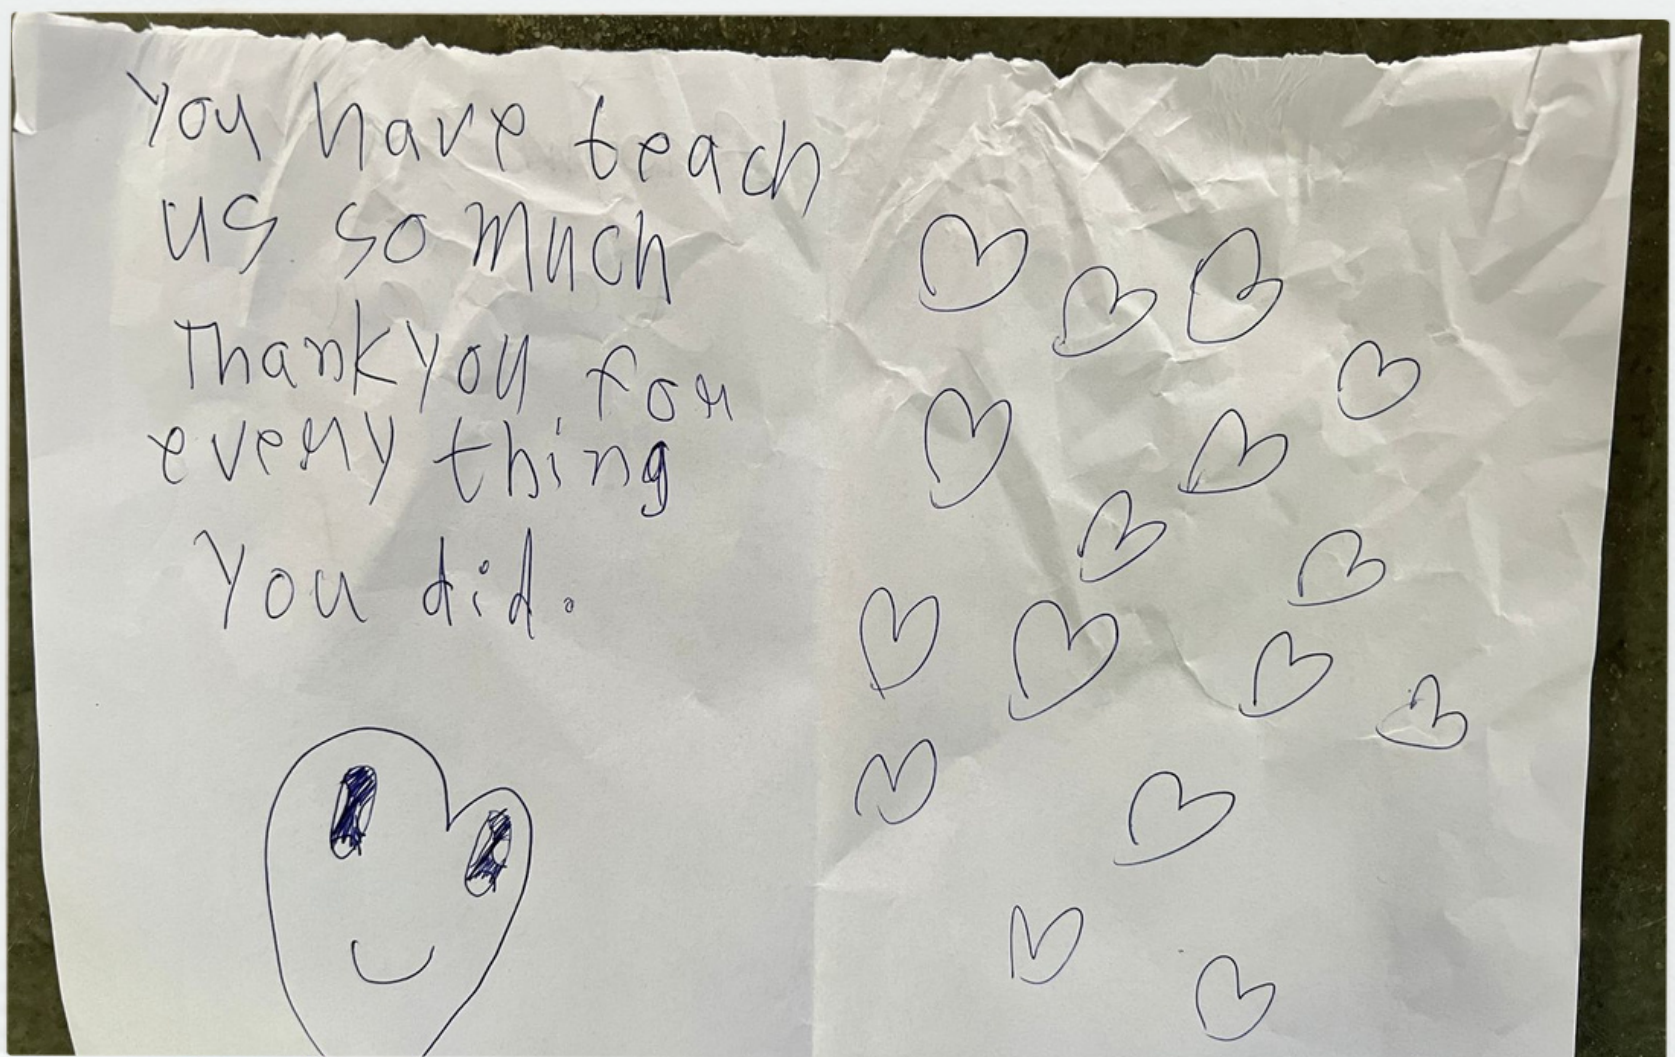 You have teach
us so much
Thankyou for
every thing
You did.